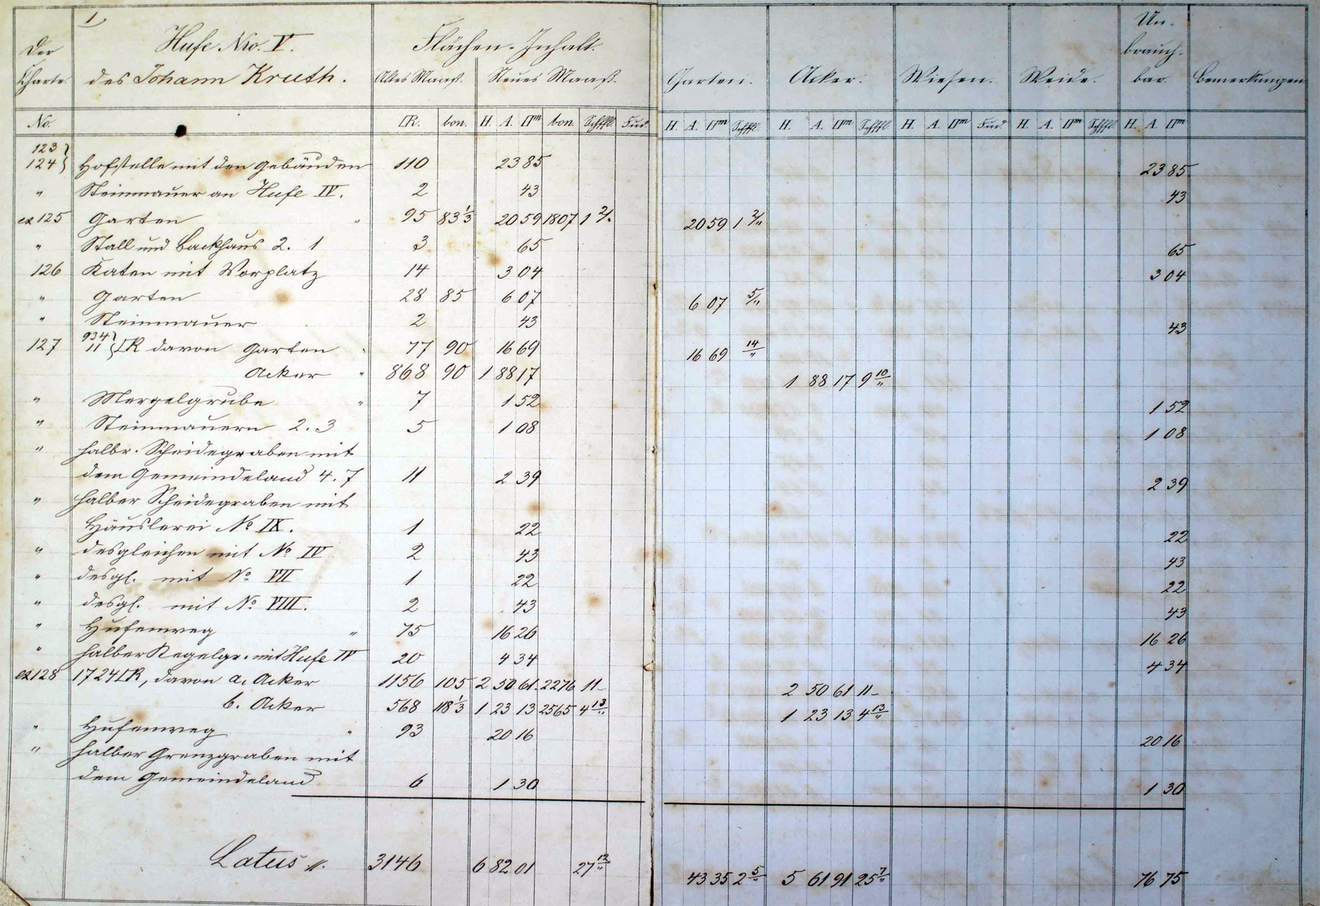 1
Der Charte No.
Hufe Nro. V.
des Johann Kruth.
Flächen-Inhalt.
Altes Maaß. Neues Maaß.
□R. bon. H. A. □m bon. Scheffel Fud.
Garten. Acker. Wiesen. Weide. Unbrauchbar. Bemerkungen
H. A. □m Scheffel H. A. □m Scheffel H. A. □m Fud. H. A. □m H. A. □m
123
124 } Hofstelle mit den Gebäuden 110 23 85 23 85
" Steinmauer an Hufe IV. 2 43 43
ex 125 Garten " 95 83 1/3 20 59 1807 1 2/. 20 59 1 2/"
" Stall und Backhaus 2. 1 3 65 65
126 Katen mit Vorplatz 14 3 04 3 04
" Garten 28 85 6 07 6 07 5/"
" Steinmauer 2 43 43
127 934/11 } □R davon Garten " 77 90 16 69 16 69 14/"
Acker " 868 90 1 88 17 1 88 17 9 10/"
" Mergelgrube " 7 1 52 1 52
" Steinmauern 2. 3 5 1 08 1 08
" halbr. Scheidegraben mit
dem Gemeindeland 4. 7 11 2 39 2 39
" halber Scheidegraben mit
Häuslerei No IX. 1 22 22
" desgleichen mit No IV 2 43 43
" desgl. mit No VII 1 22 22
" desgl. mit No VIII. 2 43 43
" Hufenweg " 75 16 26 16 26
" halber Kegelgr. mit Hufe IV 20 4 34 4 34
ex 128 1724 □R, davon a. Acker 1156 105 2 50 61 2276 11 - 2 50 61 11 -
b. Acker 568 118 1/3 1 23 13 2565 4 13/" 1 23 13 4 13/"
" Hufenweg " 93 20 16 20 16
" halber Grenzgraben mit
dem Gemeindeland 6 1 30 1 30
Latus 3146 6 82 01 27 12/" 43 35 2 5/" 5 61 91 25 7/" 76 75